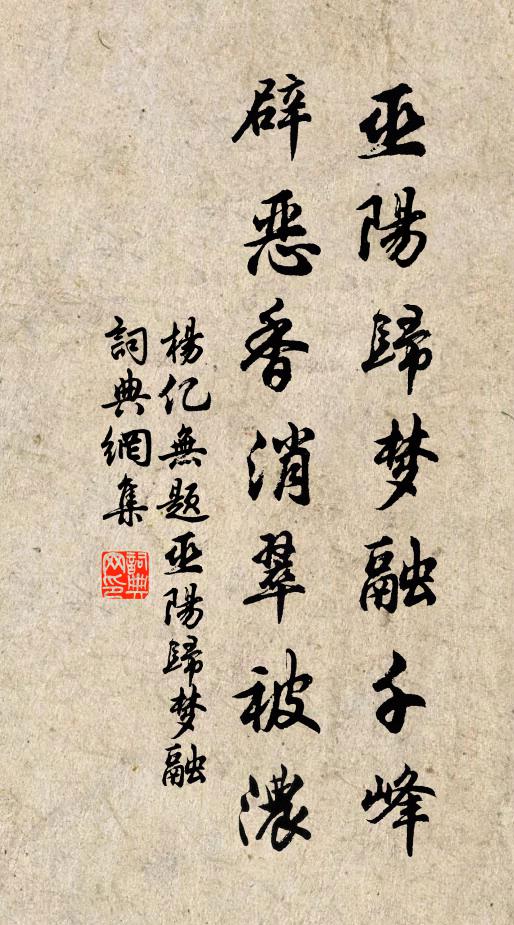 巫陽歸梦融千峰
辟惡香消翠被濃
楊亿無题巫陽歸梦融
詞典網集
詞典网印